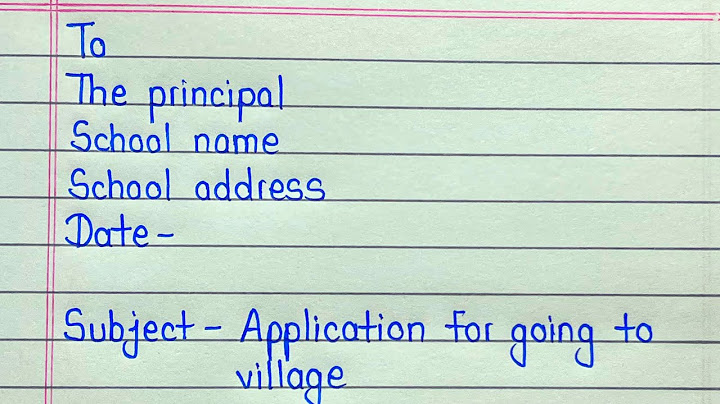 To
The principal
School name
School address
Date -
Subject - Application for going to
village